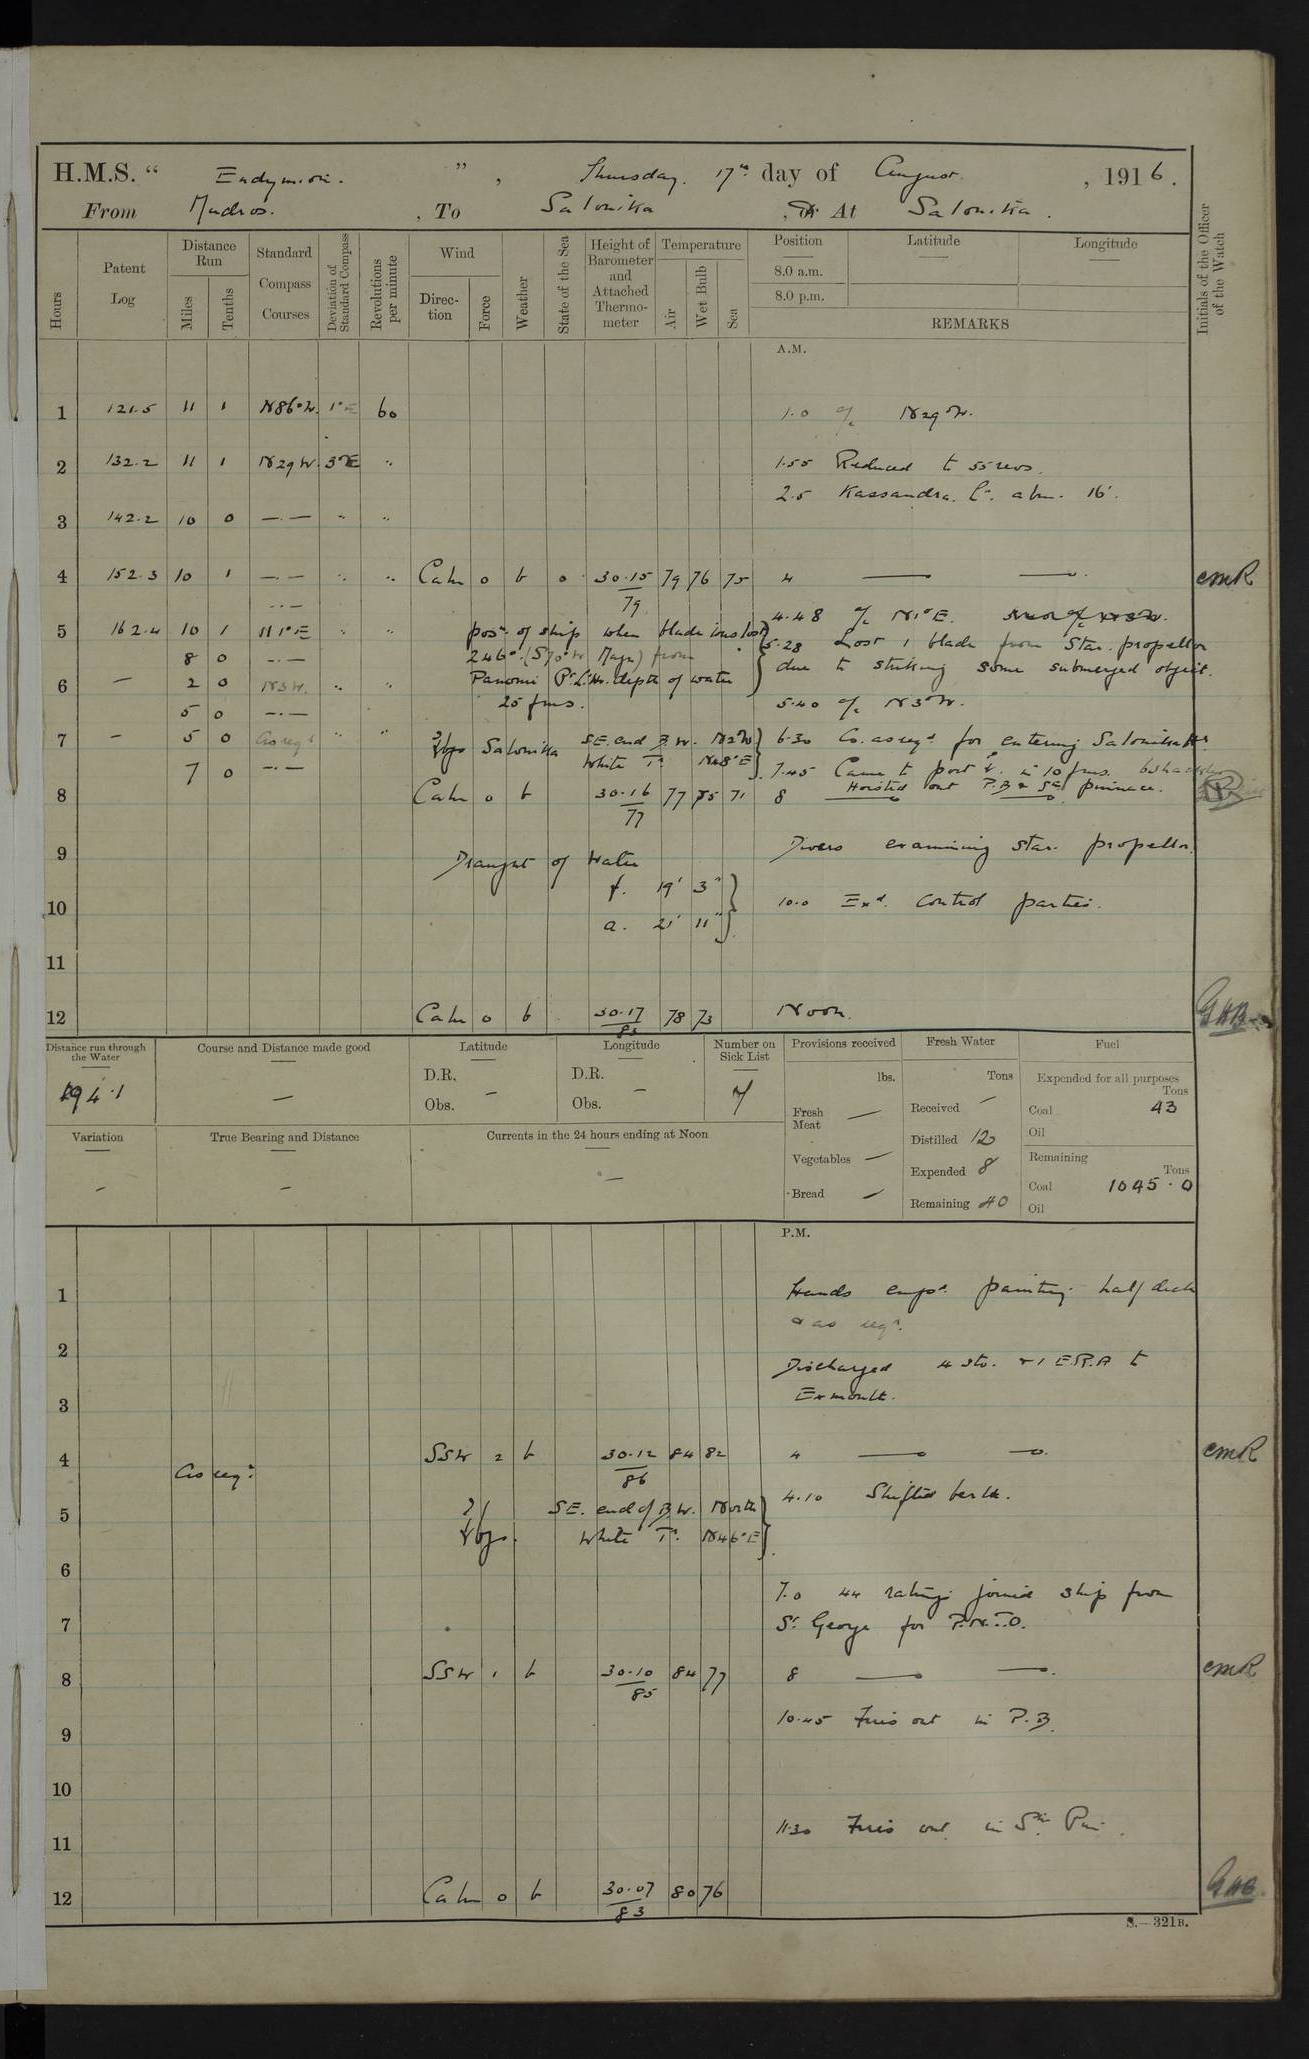 H.M.S. “ Endymion. ” , Thursday. 17th day of August , 1916.
From Mudros. , To Salonika , At Salonika .
Hours
Patent Log
Distance Run
Miles
Tenths
Standard Compass Courses
Deviation of Standard Compass
Revolutions per minute
Wind
Direction
Force
Weather
State of the Sea
Height of Barometer and Attached Thermometer
Temperature
Air
Wet Bulb
Sea
Position
8.0 a.m.
8.0 p.m.
Latitude
Longitude
REMARKS
Initials of the Officer of the Watch
A.M.
1 121.5 11 1 N86°W. 1°E 60 1.0 a/c N29°W.
2 132.2 11 1 N29W. 3°E " 1.55 Reduced to 55 revs.
2.5 Kassandra. Pt. abm. 16'.
3 142.2 10 0 —.— " "
4 152.3 10 1 —.— " " Calm 0 b 0 30.15 79 76 75 4 — — CMR
79
—.— 4.48 a/c N1°E.
5 162.4 10 1 N1°E " " posn. of ship when blade was lost 5.28 Lost 1 blade from Star. propellor
8 0 —.— 246° (S70°W Mag.) from due to striking some submerged object.
6 — 2 0 N3W. " " Panomi Pt. Lt. Ho. depth of water
5 0 —.— 25 fms. 5.40 a/c N3°W.
7 — 5 0 as reqd " " bgs Salonika S.E. end B.W. N2W 6.30 Co. as reqd. for entering Salonika Hr.
7 0 —.— White Tr. N48°E 7.45 Came to port in 10 fms.
Hoisted out P.B & Sg pinnace.
8 Calm 0 b 30.16 77 75 71 8 — —
77
9 Draught of Water Divers examining star. propellor.
f. 19' 3"
10 a. 21' 11" 10.0 Exd. Control parties.
11
12 Calm 0 b 30.17 78 73 Noon. GHB
83
Distance run through the Water
194.1
Course and Distance made good
—
Latitude
D.R.
Obs. —
Longitude
D.R.
Obs. —
Number on Sick List
7
Provisions received
lbs.
Fresh Meat —
Vegetables —
Bread —
Fresh Water
Tons
Received —
Distilled 12
Expended 8
Remaining 40
Fuel
Expended for all purposes
Tons
Coal 43
Oil
Remaining
Tons
Coal 1045.0
Oil
Variation
—
True Bearing and Distance
—
Currents in the 24 hours ending at Noon
—
P.M.
1 Hands empd. painting half deck
& as reqd.
2 Discharged 4 Sto. & 1 E.R.A to
3 Exmouth.
4 SSW 2 b 30.12 84 82 4 — — CMR
as reqd. 86
4.10 Shifted berth.
5 S.E. end of B.W. North
bgs. White Tr. N46°E
6
7.0 44 ratings joined ship from
7 St. George for P.N.T.O.
8 SSW 1 b 30.10 84 77 8 — — CMR
85
9 10.45 Fires out in P.B.
10
11 11.30 Fires out in Sm. Pin.
12 Calm 0 b 30.07 80 76 GHB
83
S.—321B.